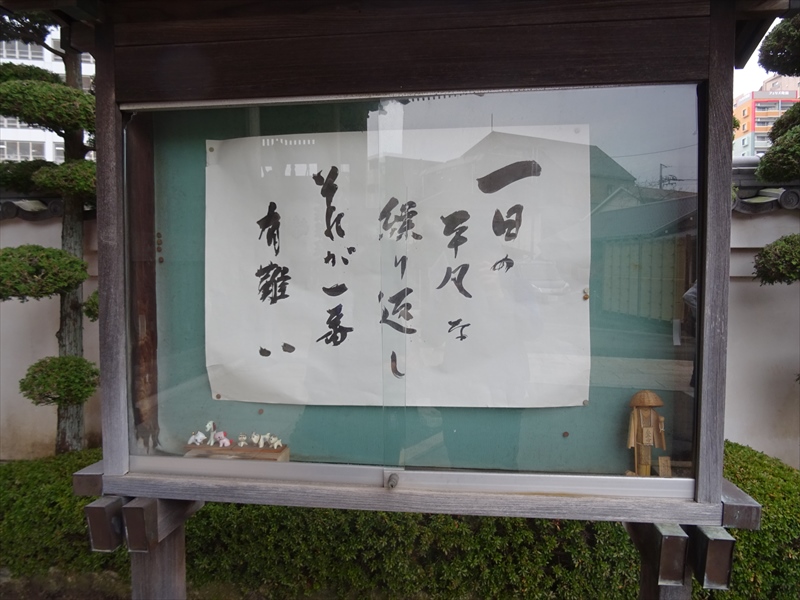 一日の
平凡な
繰り返し
それが一番
有難い